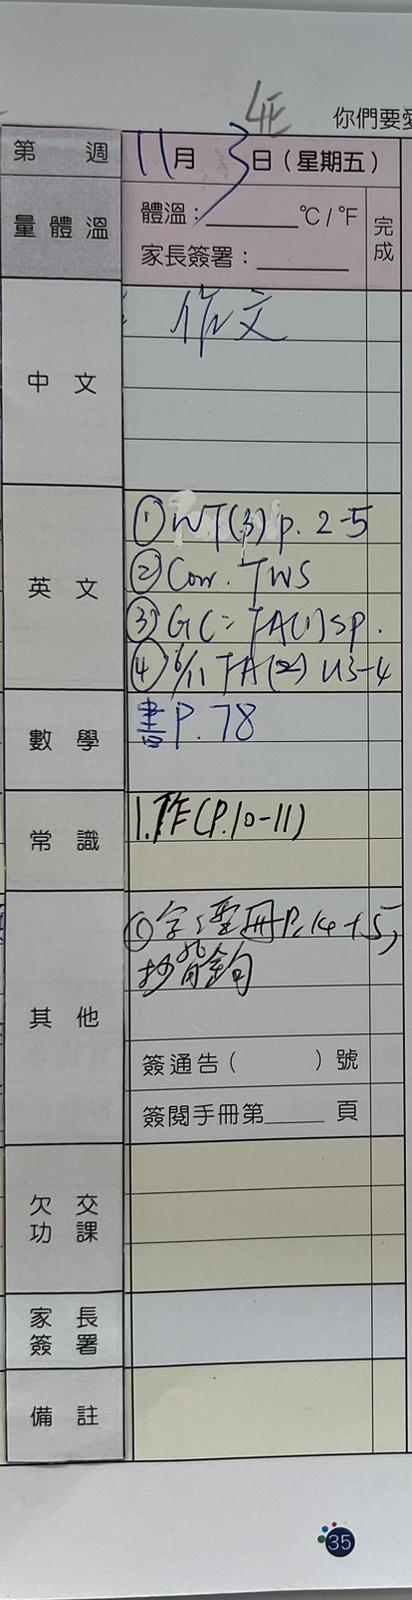 4E
你們要愛
第 週 11月3日(星期五)
量體溫 體溫：______°C / °F 完成
家長簽署：______
中文 作文
英文 ① WT(3) p. 2-5
② Corr. TWS
③ GC= TA(1) 5p.
④ 6/11 TA(2) U3-4
數學 書P.78
常識 1.作(P.10-11)
其他 P.14+15,
抄
簽通告( )號
簽閱手冊第____頁
欠交功課
家長簽署
備註
35